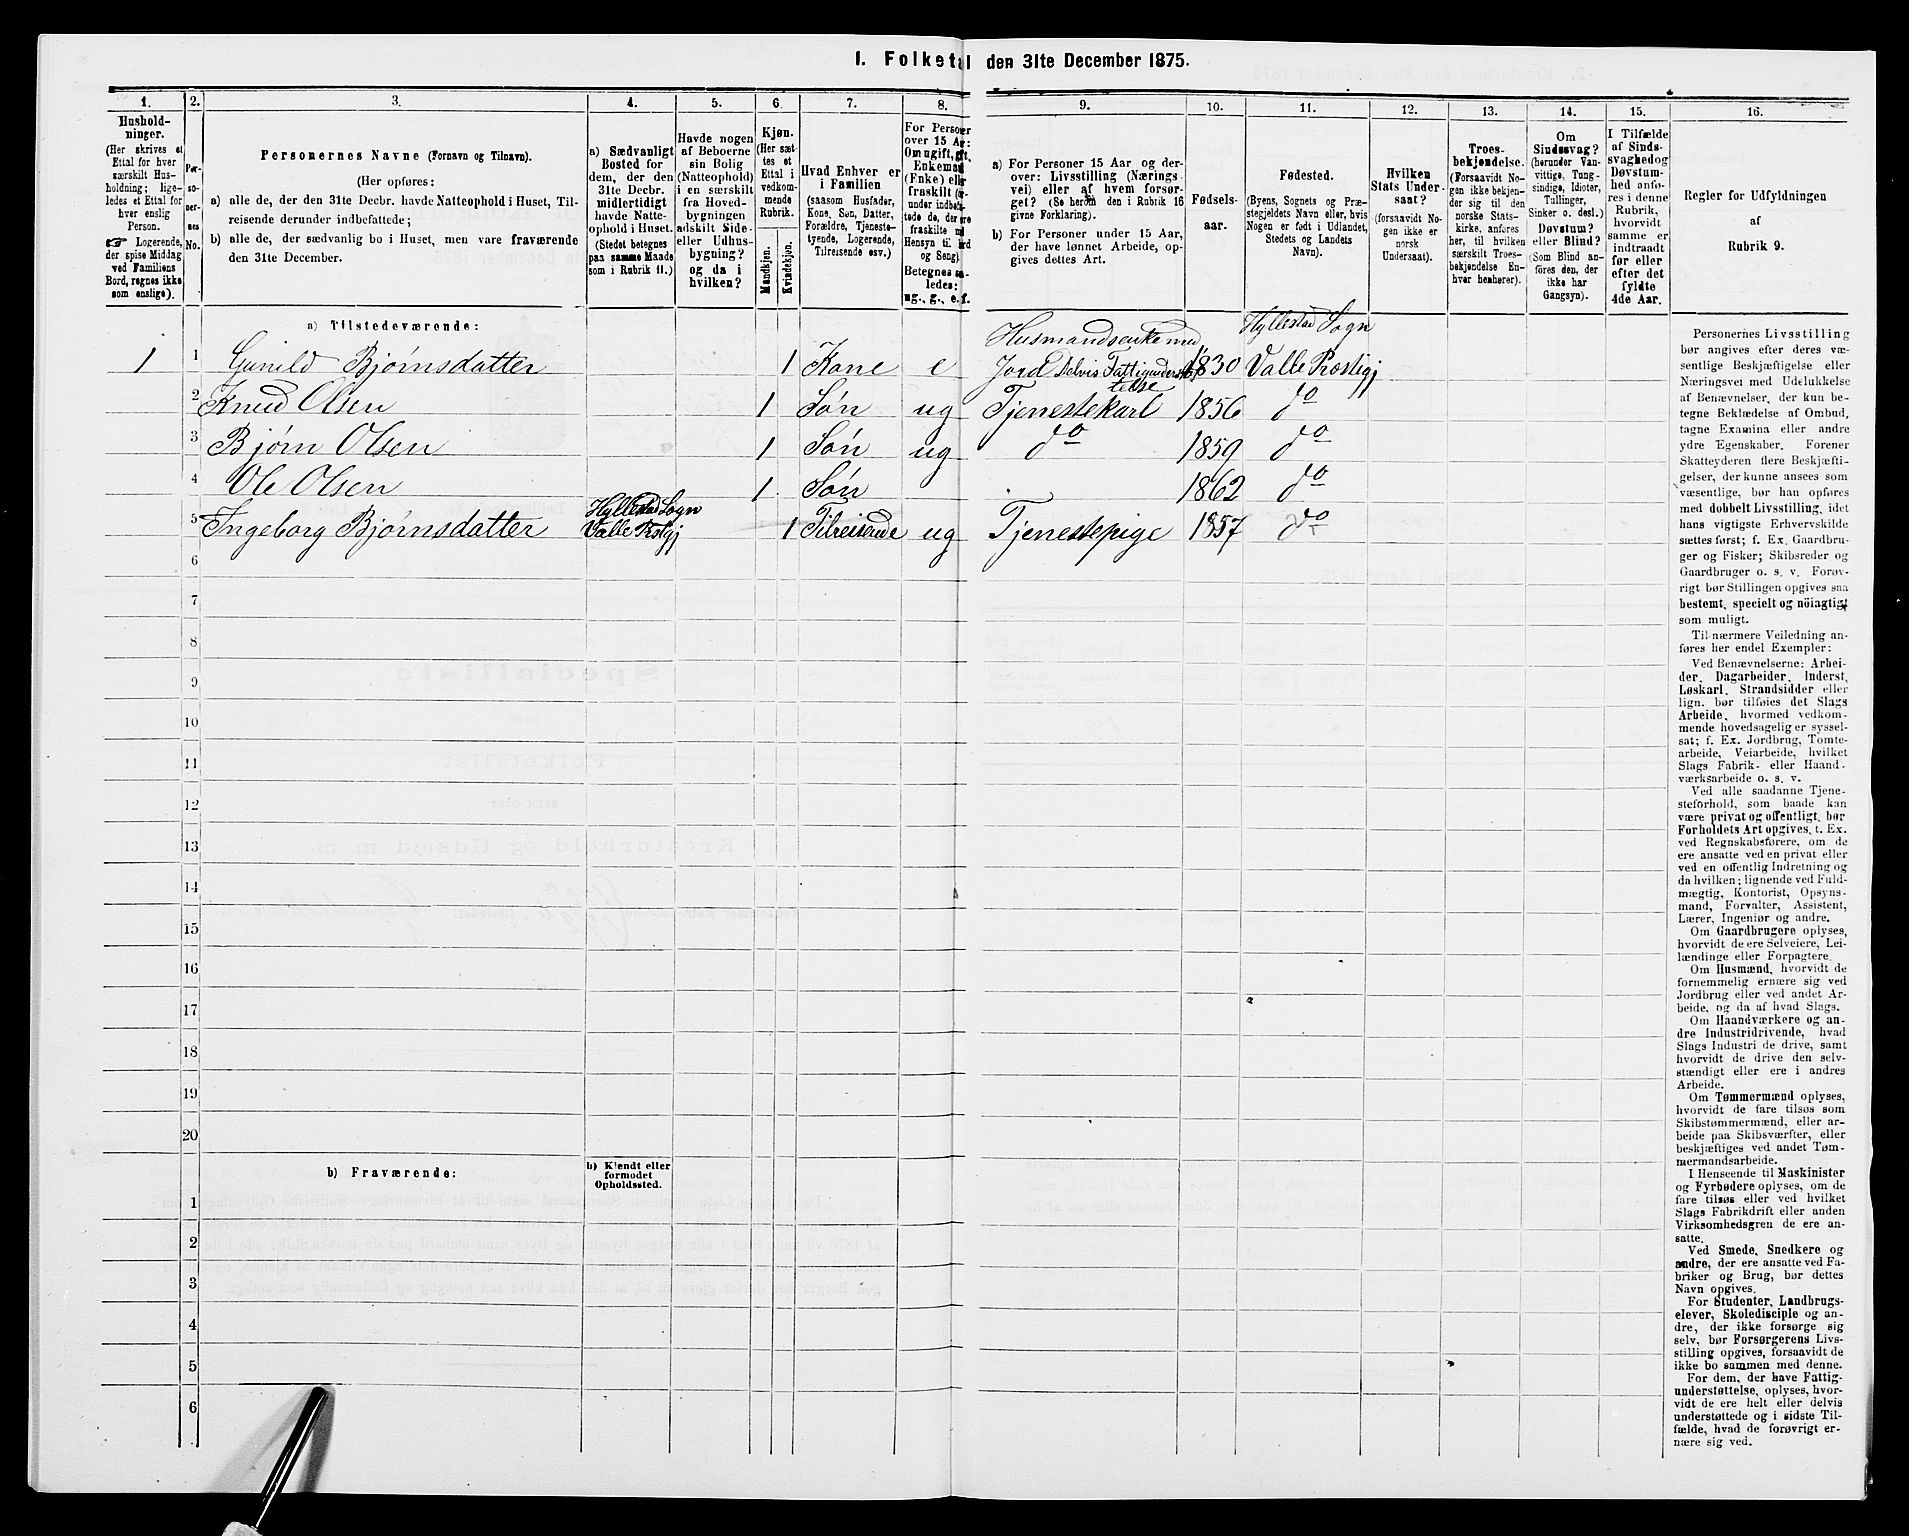 1. Folketal den 31te December 1875.
1. 2. 3. 4. 5. 6. 7. 8. 9. 10. 11. 12. 13. 14. 15. 16.
Hushold-
ninger.
(Her skrives et
Ettal for hver
særskilt Hus-
holdning; lige-
ledes et Ettal for
hver enslig
Person.
☞ Logerende,
der spise Middag
ved Familiens
Bord, regnes ikke
som enslige).
Per-
so-
ner-
nes
No.
Personernes Navne (Fornavn og Tilnavn).
(Her opføres:
a) alle de, der den 31te Decbr. havde Natteophold i Huset, Til-
reisende derunder indbefattede;
b) alle de, der sædvanlig bo i Huset, men vare fraværende
den 31te December.
a) Sædvanligt
Bosted for
dem, der den
31te Decbr.
midlertidigt
havde Natte-
ophold i Huset.
(Stedet betegnes
paa samme Maade
som i Rubrik 11.)
Havde nogen
af Beboerne
sin Bolig
(Natteophold)
i en særskilt
fra Hoved-
bygningen
adskilt Side-
eller Udhus-
bygning?
og da i
hvilken?
Kjøn.
(Her sæt-
tes et
Ettal i
vedkom-
mende
Rubrik.
Mandkjøn.
Kvindekjøn.
Hvad Enhver er
i Familien
(saasom Husfader,
Kone, Søn, Datter,
Forældre, Tjeneste-
tyende, Logerende,
Tilreisende osv.)
For Personer
over 15 Aar:
Om ugift, gift,
Enkemand
(Enke) eller
fraskilt
Betegnes saa-
ledes:
ug., g., e. f.
a) For Personer 15 Aar og der-
over: Livsstilling (Nærings-
vei) eller af hvem forsør-
get? (Se herom den i Rubrik 16
givne Forklaring).
b) For Personer under 15 Aar,
der have lønnet Arbeide, op-
gives dettes Art.
Fødsels-
aar.
Fødested.
(Byens, Sognets og Præ-
stegjeldets Navn eller, hvis
Nogen er født i Udlandet,
Stedets og Landets
Navn).
Hvilken
Stats Under-
saat?
(forsaavidt No-
gen ikke er
norsk
Undersaat).
Troes-
bekjendelse.
(Forsaavidt No-
gen ikke bekjen-
der sig til den
norske Stats-
kirke, anføres
her, til hvilken
særskilt Troes-
bekjendelse En-
hver henhører).
Om
Sindssvag?
(herunder Van-
vittige, Tung-
sindige, Idioter,
Tullinger,
Sinker o. desl.)
Døvstum?
eller Blind?
(Som Blind an-
føres den, der
ikke har
Gangsyn).
I Tilfælde
af Sinds-
svaghed og
Døvstum-
hed anfø-
res i denne
Rubrik,
hvorvidt
samme er
indtraadt
før eller
efter det
fyldte
4de Aar.
Regler for Udfyldningen
af
Rubrik 9.
a) Tilstedeværende:
1 1 Gunild Bjørnsdatter 1 Kone e Husmandsenke med Jord Delvis Fattigunderstøttelse 1830 Hyllestad Sogn Valle Præstigj
2 Knud Olsen 1 Søn ug Tjenestekarl 1856 do
3 Bjørn Olsen 1 Søn ug do 1859 do
4 Ole Olsen 1 Søn 1862 do
5 Ingeborg Bjørnsdatter Hyllestad Sogn Valle Prstgj 1 Tilreisende ug Tjenestepige 1857 do
6
7
8
9
10
11
12
13
14
15
16
17
18
19
20
b) Fraværende: b) Kjendt eller
formodet
Opholdssted.
1
2
3
4
5
6
Personernes Livsstilling
bør angives efter deres væ-
sentlige Beskjæftigelse eller
Næringsvei med Udelukkelse
af Benævnelser, der kun be-
tegne Beklædelse af Ombud,
tagne Examina eller andre
ydre Egenskaber. Forener
Skatteyderen flere Beskjæfti-
gelser, der kunne ansees som
væsentlige, bør han opføres
med dobbelt Livsstilling, idet
hans vigtigste Erhvervskilde
sættes først; f. Ex. Gaardbru-
ger og Fisker; Skibsreder og
Gaardbruger o. s. v. Forøv-
rigt bør Stillingen opgives saa
bestemt, specielt og nöiagtigt
som muligt.
Til nærmere Veiledning an-
føres her endel Exempler:
Ved Benævnelserne: Arbei-
der, Dagarbeider, Inderst,
Løskarl, Strandsidder eller
lign. bør tilføies det Slags
Arbeide, hvormed vedkom-
mende hovedsagelig er syssel-
sat; f. Ex. Jordbrug, Tomte-
arbeide, Veiarbeide, hvilket
Slags Fabrik- eller Haand-
værksarbeide o. s. v.
Ved alle saadanne Tjene-
steforhold, som baade kan
være privat og offentligt, bør
Forholdets Art opgives, t. Ex.
ved Regnskabsførere, om de
ere ansatte ved en privat eller
ved en offentlig Indretning og
da hvilken; lignende ved Fuld-
mægtig, Kontorist, Opsyns-
mand, Forvalter, Assistent,
Lærer, Ingeniør og andre.
Om Gaardbrugere oplyses,
hvorvidt de ere Selveiere, Lei-
lændinge eller Forpagtere.
Om Husmænd, hvorvidt de
fornemmelig ernære sig ved
Jordbrug eller ved andet Ar-
beide, og da af hvad Slags.
Om Haandværkere og an-
dre Industridrivende, hvad
Slags Industri de drive, samt
hvorvidt de drive den selv-
stændigt eller ere i andres
Arbeide.
Om Tømmermænd oplyses,
hvorvidt de fare tilsøs som
Skibstømmermænd, eller ar-
beide paa Skibsværfter, eller
beskjæftiges ved andet Tøm-
mermandsarbeide.
I Henseende til Maskinister
og Fyrbødere oplyses, om de
fare tilsøs eller ved hvilket
Slags Fabrikdrift eller anden
Virksomhedsgren de ere an-
satte.
Ved Smede, Snedkere og
andre, der ere ansatte ved Fa-
briker og Brug, bør dettes
Navn opgives.
For Studenter, Landbrugs-
elever, Skoledisciple og an-
dre, der ikke forsørge sig
selv, bør Forsørgerens Livs-
stilling opgives, forsaavidt de
ikke bo sammen med denne.
For dem, der have Fattig-
understøttelse, oplyses, hvor-
vidt de ere helt eller delvis
understøttede og i sidste Til-
fælde, hvad de forøvrigt er-
nære sig ved.